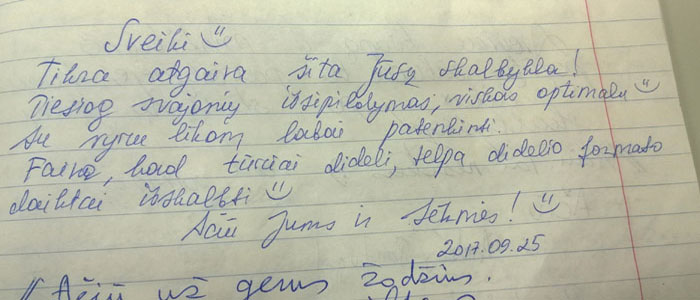 Sveiki
Tikra atgaiva šita Jūsų skalbykla!
Tiesiog svajonių išsipildymas, viskas optimalu
Su vyru likom labai patenkinti.
Faina, kad tūriai dideli, telpa didelio formato
daiktai išskalbti
Ačiū Jums ir sėkmės!
2017.09.25
Ačiū už gerus žodžius.